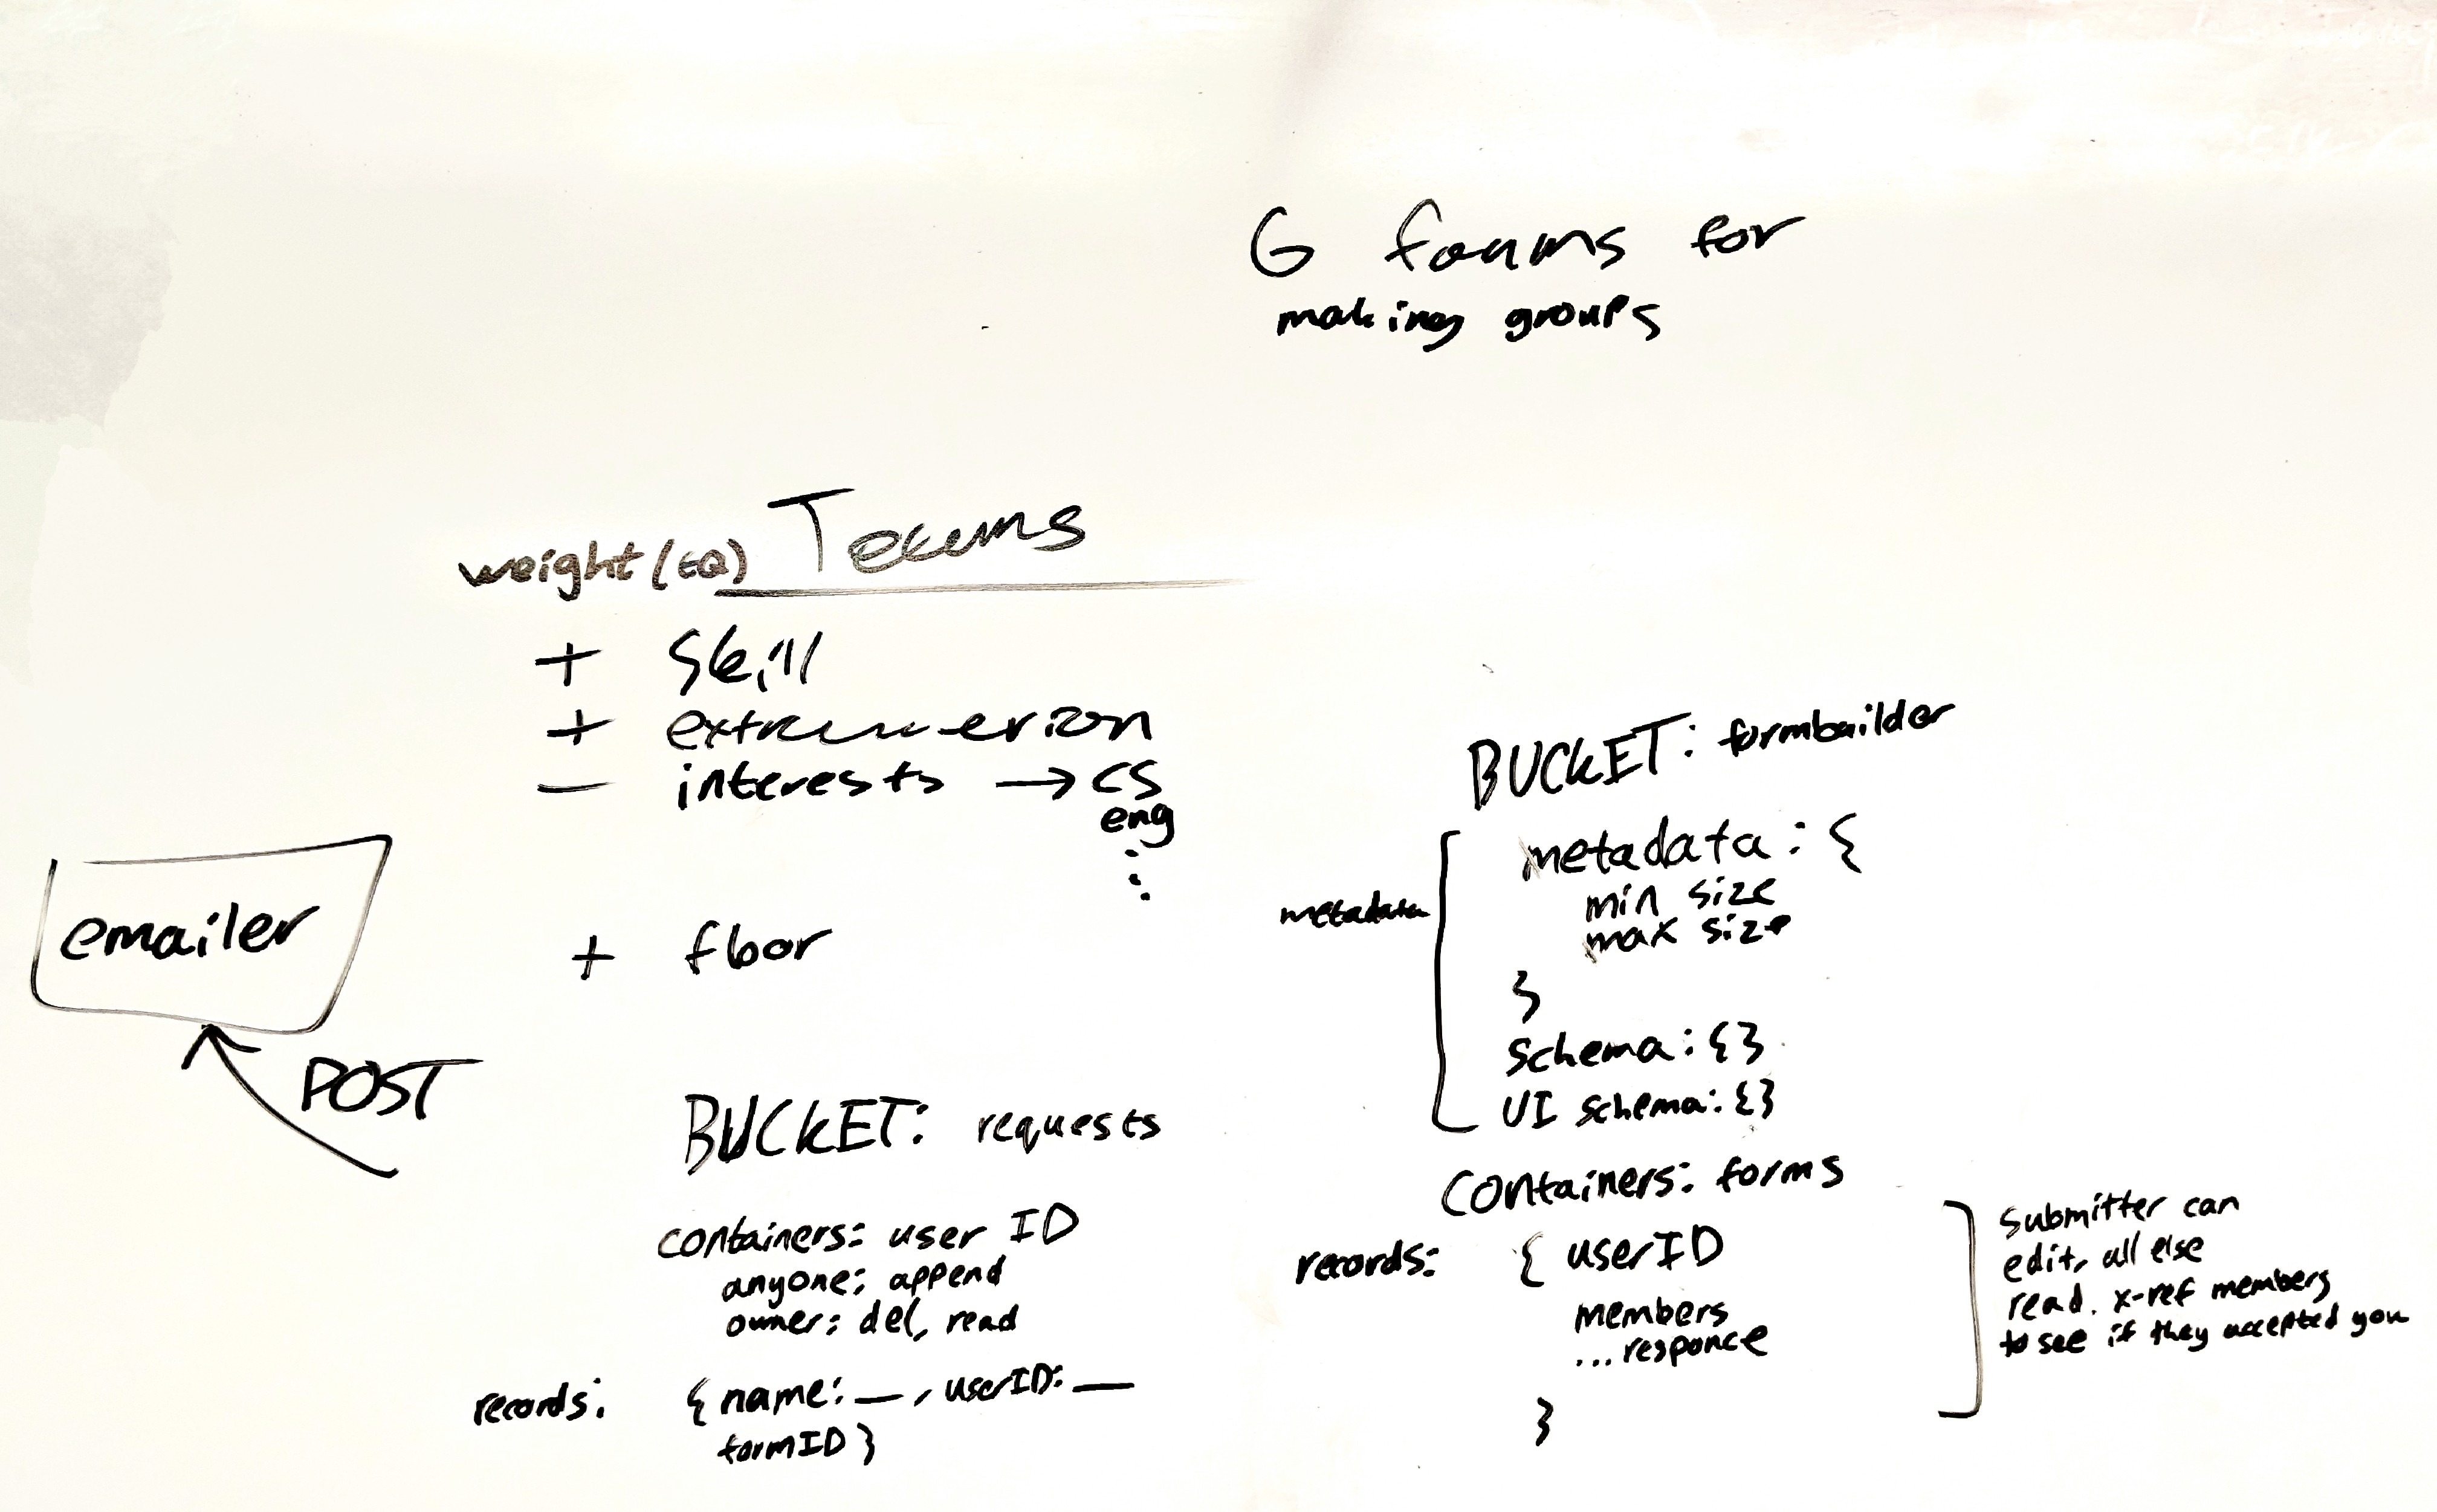 G forms for
making groups
weight (±Q) Teams
+ skill
+ extraversion
- interests → CS
eng
⋮
+ floor
emailer
POST
BUCKET: requests
containers: user ID
anyone: append
owner: del, read
records: { name: __, userID: __
formID }
BUCKET: formbuilder
metadata
metadata: {
min size
max size
}
schema: {}
UI schema: {}
containers: forms
records: { userID
members
...responce
}
submitter can
edit, all else
read. x-ref members
to see if they accepted you